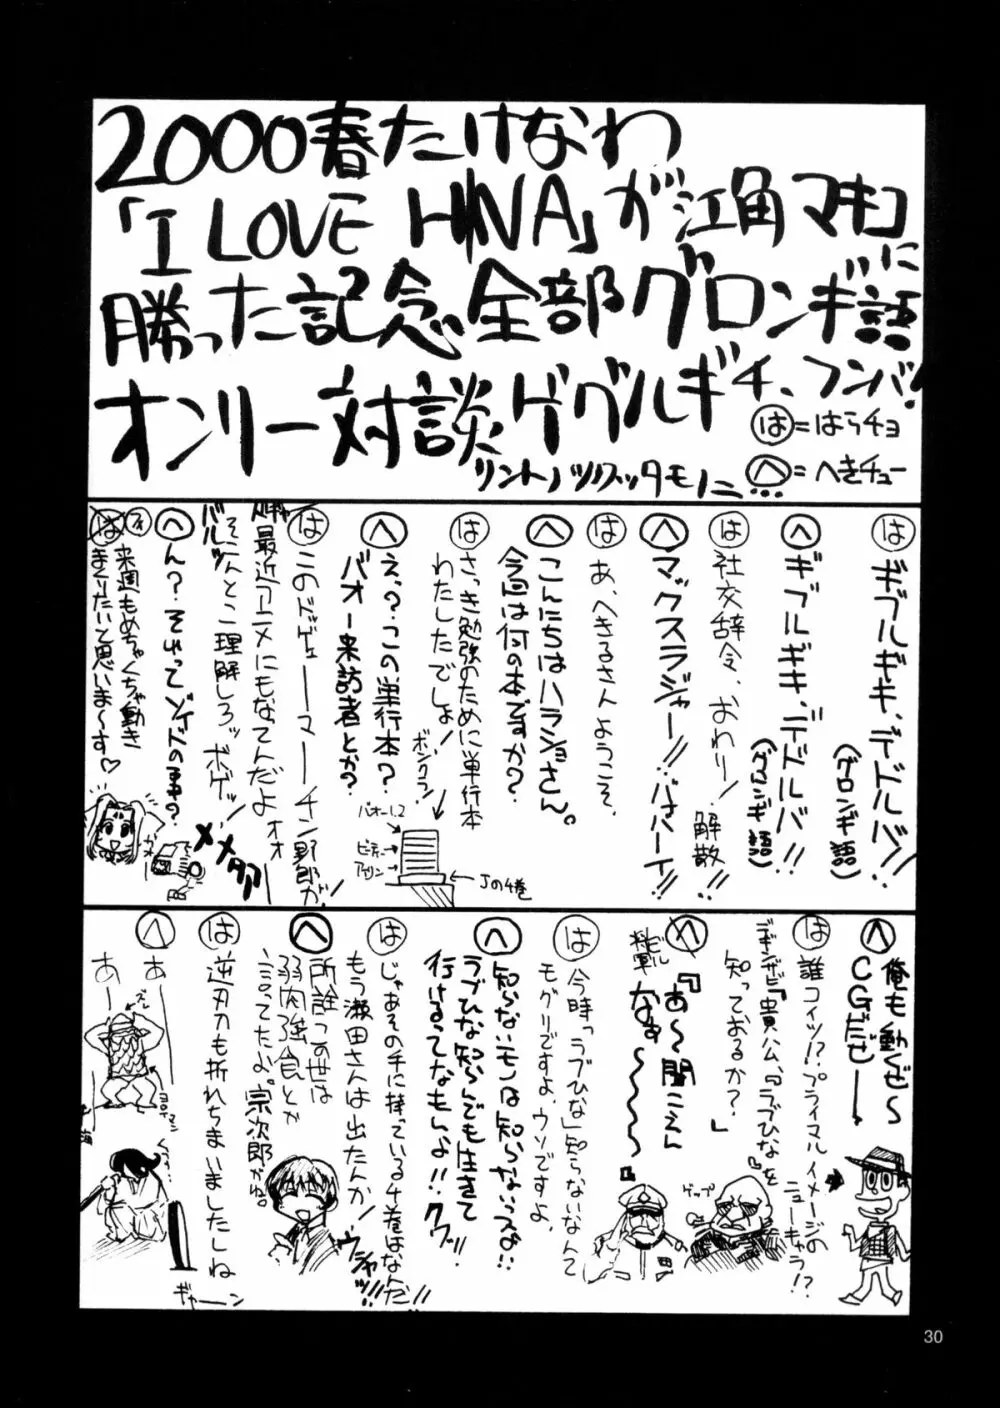 2000春たけなわ
「I LOVE HINA」が江角マキコに
勝った記念全部グロンギ語
オンリー対談ゲゲルギチ、フンバ!
リントノツクッタモノニ…
は=はらチョ
へ=へきチュー
は ギブルギキ、デドルバ!!
(グロンギ語)
へ ギブルギキ、デドルバ!!
(グロンギ語)
は 社交辞令、おわり!
解散!!
へ マックスラジャー!!バはハーイ!!
は あ、へきるさんようこそ、
へ こんにちはハラショさん。
今回は何の本ですか?
は さっき勉強のために単行本
わたしたでしょ!
ボンクラ!
へ えっ?この単行本?
バオー来訪者とか?
バオー1、2
ビーティー
アイリン
Jの4巻
は このドッゲェーーマーーチン野郎が!
最近アニメにもなってんだよオオ
そこんとこ理解しろッボゲッ!
バルッ
へ ん?それってゾイドの事?
メメタァ
来週もめちゃくちゃ動き
まくりたいと思いま〜す♡
へ 俺も動くぜ〜
CGだぜ——!
は 誰コイツ!?プライマルイメージの
ニューキャラ!?
デギンザビ『貴公、『ラブひな』を
知っておるか?』
ゲップ
へ 『あ〜聞こえん
なぁ〜〜〜〜〜』
ビル
将軍
は 今時っラブひな」知らないなんて
モグリですよ、ウソですよ、
へ 知らないモンは知らないっスよ!!
ラブひな知らんでも生きて
行けるってなもんよ!!クワッ!!
は じゃあその手に持っている4巻はなんだ!!
もう瀬田さんは出たんか!
ウシャッ!!
へ 所詮この世は
弱肉強食とか
言ってたよ。宗次郎がね。
は 逆刃刀も折れちまいましたしね
ギャーン
へ あー
あー